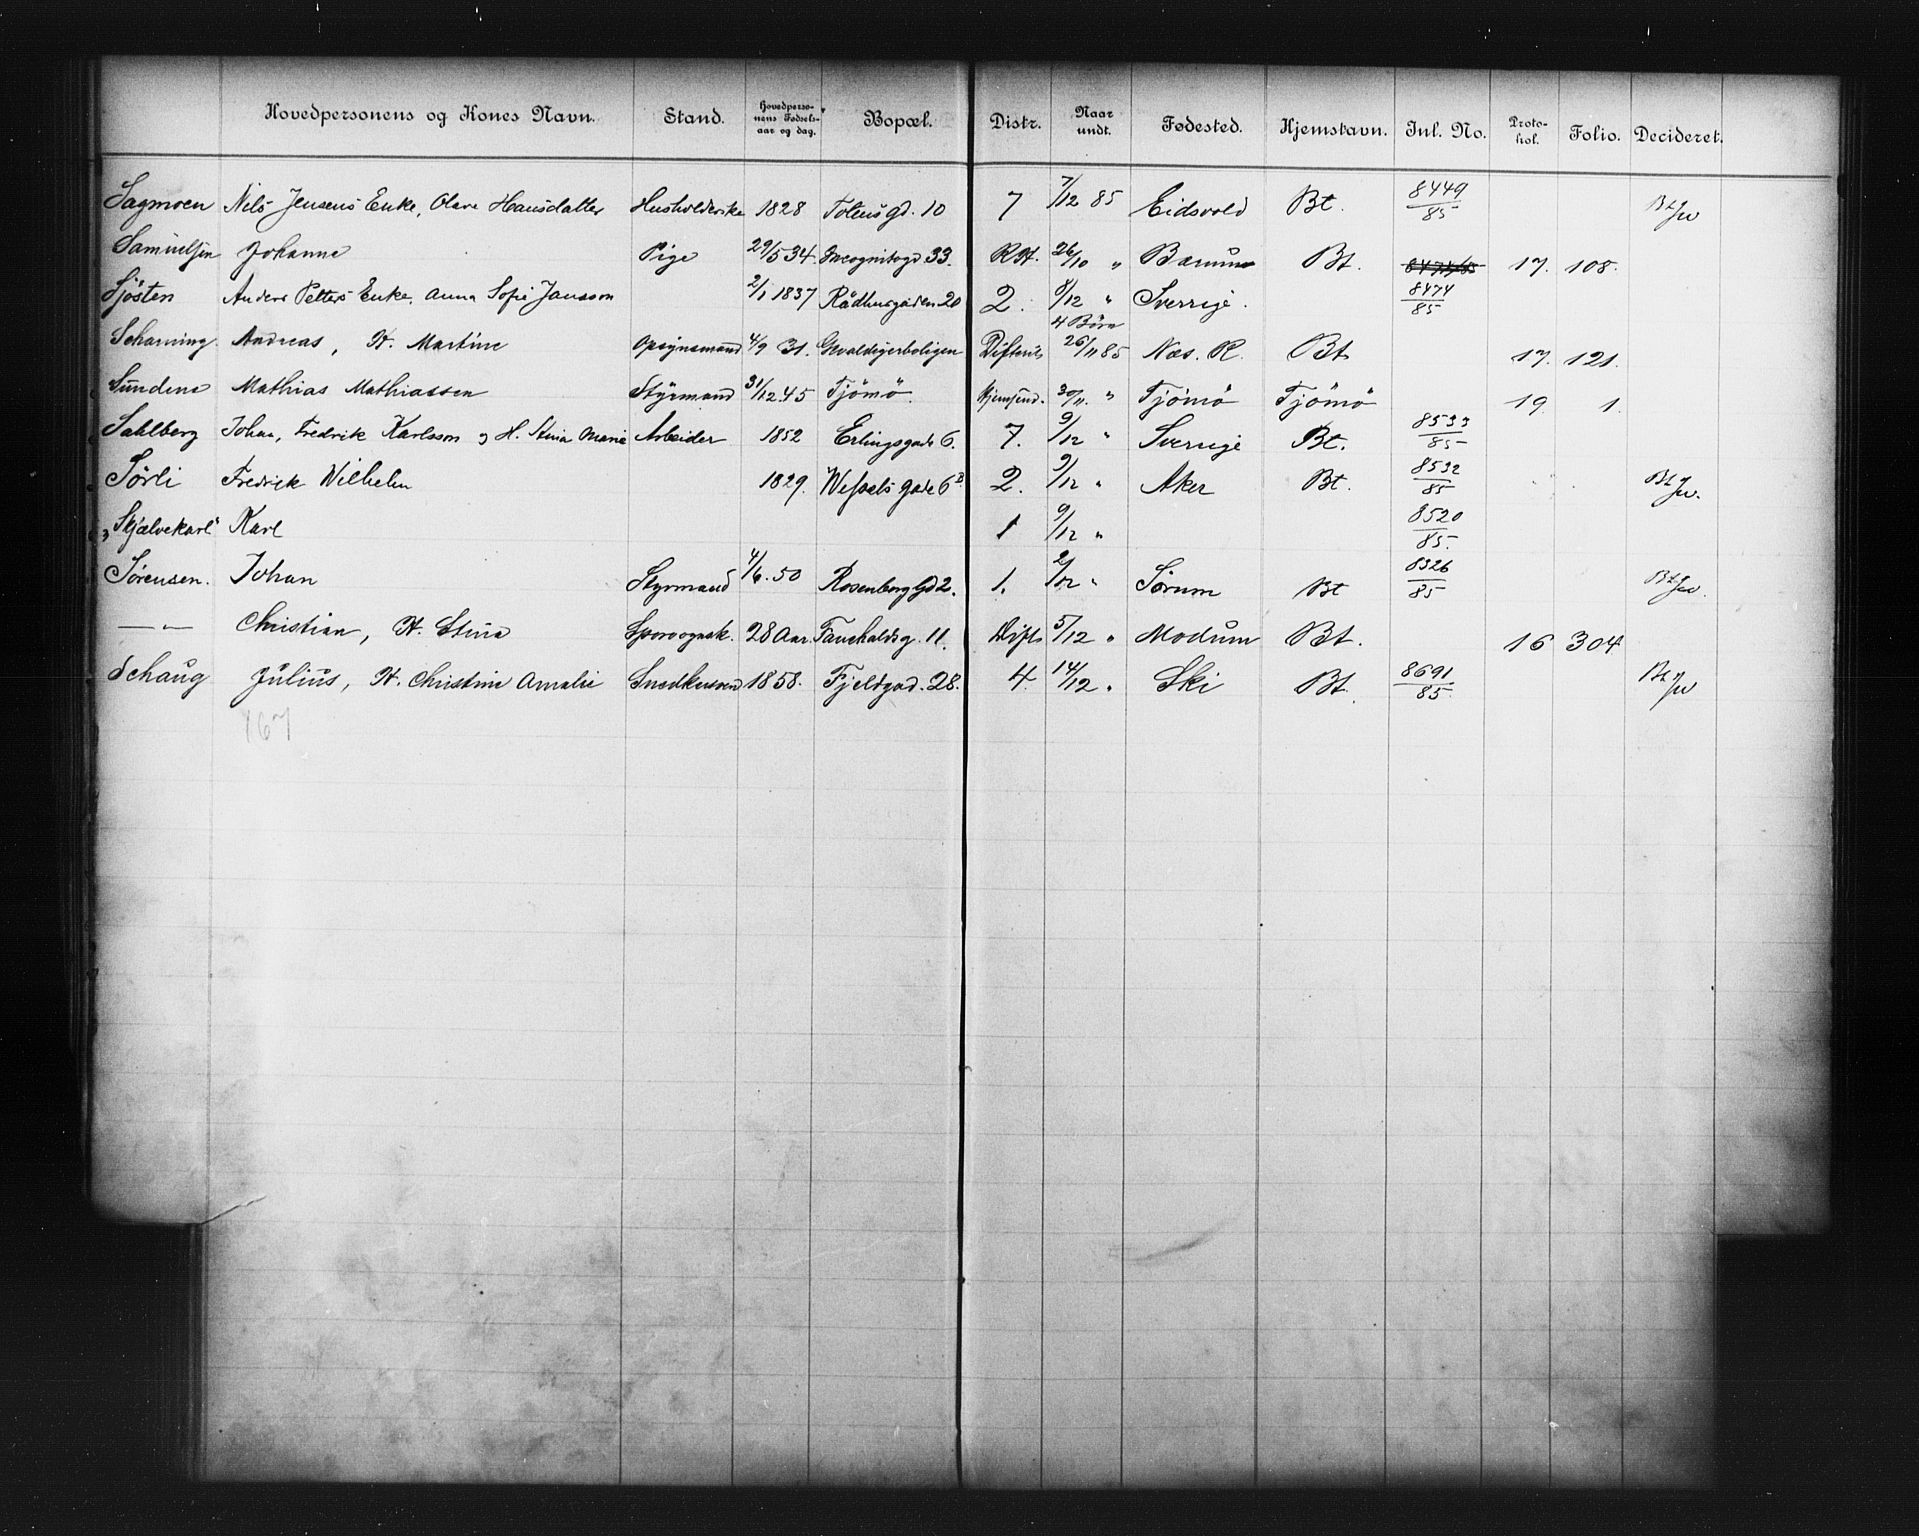 Hovedpersonens og Kones Navn. Stand. Hovedpersonens Fødselsaar og dag. Bopæl. Distr. Naar undt. Fødested. Hjemstavn. Inl. No. Protokol. Folio. Decideret.
Sagmoen Nils Jensens Enke, Olave Hansdatter Husholderske 1828 Totensgd. 10 7 7/12 85 Eidsvold Bt. 8449/85 Bt
Samuelsen Johanne Pige 29/5 34. Incognitogd. 33. RH. 26/10 " Bærum Bt. 8474/85 17. 108.
Sjösten Anders Petters Enke, Anna Sofie Jansson 2/1 1837 Rådhusgaden 20 2. 8/12 " Sverrige. 8474/85
4 Börn
Scharning Andreas, H. Martine Opsynsmand 4/9 31. Gevaldigerboligen Difterits 26/11 85 Næs. R. Bt 17. 121.
Sundene Mathias Mathiassen Styrmand 31/12.45 Tjömö. Hjemsend. 30/11. " Tjömö Tjömö 19. 1.
Sahlberg Johan, Fredrik Karlsson og H. Stina Marie Arbeider 1852 Erlingsgade 6. 7. 9/12 " Sverrige Bt. 8533/85
Sörli Fredrik Wilhelm 1829. Wessels gade 6 B 2. 9/12 " Aker Bt. 8532/85 Bt
"Skjælvekarl" Karl 1 9/12 " 8520/85.
Sörensen. Johan Styrmand 4/6.50 Rosenborg Gd 2. 1. 2/12 " Sörum Bt 8326/85 Bt
— " — Christian, H. Stina Sporvognsk. 28 Aar. Fauchaldsg. 11. Difts 5/12 " Modum Bt. 16 304
Schaug Julius, H. Christine Amalie Snedkersvend 1858. Fjeldgad. 28. 4. 14/12 " Ski Bt. 8691/85 Bt
167